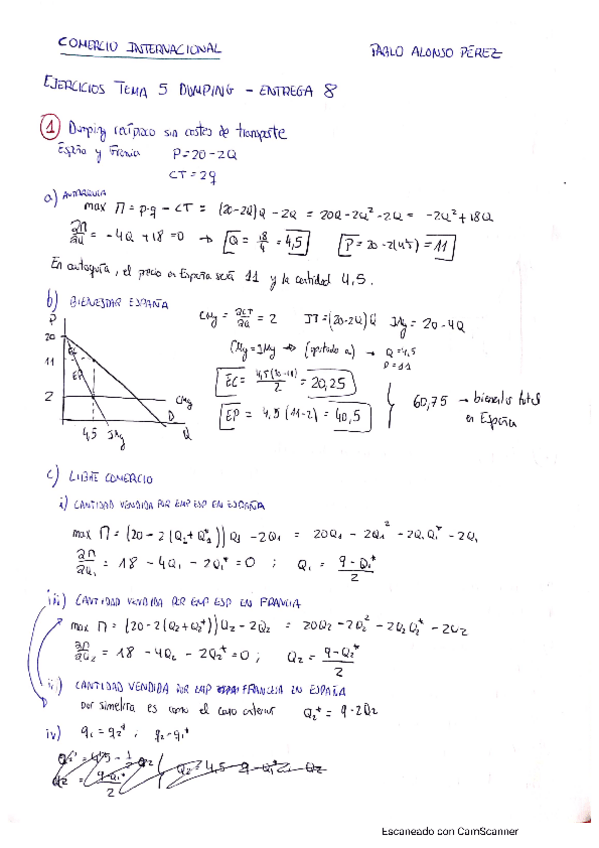 COMERCIO INTERNACIONAL
PABLO ALONSO PÉREZ
EJERCICIOS TEMA 5 DUMPING - ENTREGA 8
① Dumping recíproco sin costes de transporte
España y Francia P = 20 - 2Q
CT = 2q
a) AUTARQUÍA
max Π = p·q - CT = (20-2Q)Q - 2Q = 20Q - 2Q² - 2Q = -2Q² + 18Q
∂Π/∂Q = -4Q + 18 = 0 → Q = 18/4 = 4,5 P = 20 - 2(4,5) = 11
En autarquía, el precio en España será 11 y la cantidad 4,5.
b) BIENESTAR ESPAÑA
CMg = ∂CT/∂Q = 2 IT = (20-2Q)Q IMg = 20 - 4Q
CMg = IMg → (apartado a) → Q = 4,5
P = 11
EC = 4,5(20-11)/2 = 20,25
EP = 4,5 (11-2) = 40,5
60,75 → bienestar total
en España
P
20
11
2
EC
EP
CMg
D
4,5 IMg Q
c) LIBRE COMERCIO
i) CANTIDAD VENDIDA POR EMP ESP EN ESPAÑA
max Π = (20 - 2(Q₁ + Q₁*)) Q₁ - 2Q₁ = 20Q₁ - 2Q₁² - 2Q₁Q₁* - 2Q₁
∂Π/∂Q₁ = 18 - 4Q₁ - 2Q₁* = 0 ; Q₁ = 9 - Q₁*/2
iii) CANTIDAD VENDIDA POR EMP ESP EN FRANCIA
max Π = (20 - 2(Q₂ + Q₂*)) Q₂ - 2Q₂ = 20Q₂ - 2Q₂² - 2Q₂Q₂* - 2Q₂
∂Π/∂Q₂ = 18 - 4Q₂ - 2Q₂* = 0 ; Q₂ = 9 - Q₂*/2
ii) CANTIDAD VENDIDA POR EMP FRANCIA EN ESPAÑA
por simetría es como el caso anterior Q₂* = 9 - 2Q₂
iv) q₁ = q₂* ; q₂ = q₁*
Escaneado con CamScanner